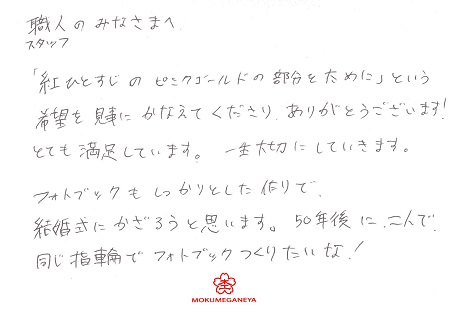 職人のみなさまへ
スタッフ
「紅ひとすじのピンクゴールドの部分をために」という
希望を見事にかなえてくださり、ありがとうございます!
とても満足しています。一生大切にしていきます。
フォトブックもしっかりとした作りで、
結婚式にかざろうと思います。50年後に、二人で、
同じ指輪でフォトブックつくりたいな!
MOKUMEGANEYA